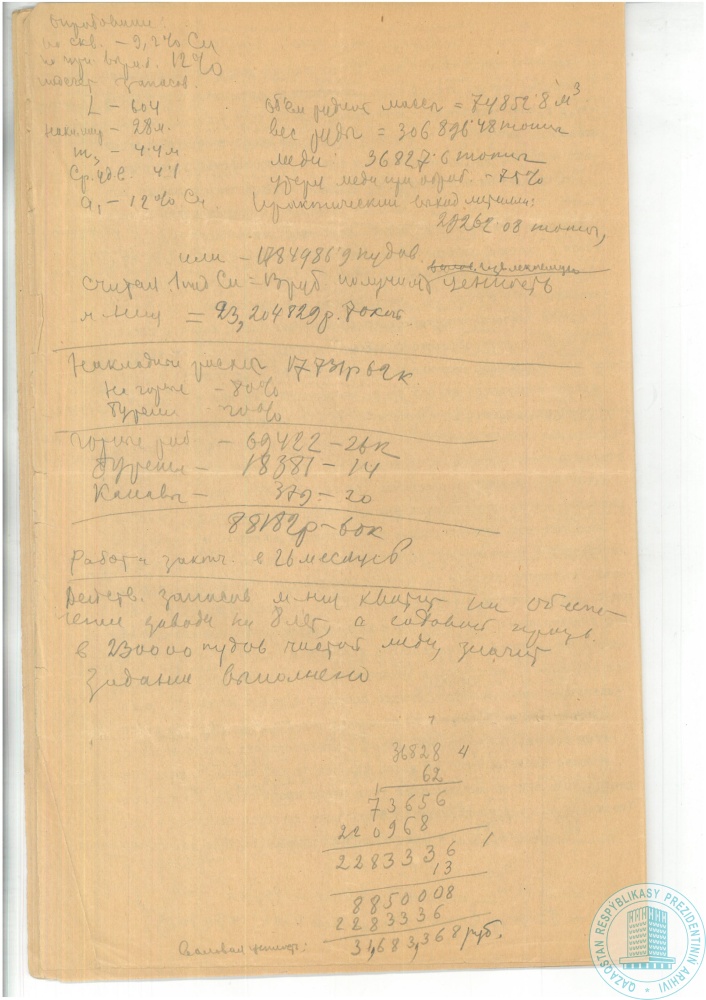 опробовании:
по скв. – 9,2% Cu
12%
подсчет запасов.
L – 604
– 28 м.
m₃ – 4.4 м
Ср. уд. в. 4.1
a₁ – 12% Cu
Объём рудной массы = 74852.8 м³
вес руды = 306896.48 тонн
меди: 36827.6 тонн
утеря меди при обраб. – 25%
Практический выход металла:
тонн,
или – пудов.
считая 1 пуд Cu = 13 руб получим ценность
м-ния = 23,204829 р. 70 коп.
Накладные расходы 17731 р 62 к.
На горные – 80%
Бурение – 20%
Горные раб. – 69422 – 26 к
Бурения – 18381 – 14
Канавы – 379 – 20
88182 р – 60 к
Работа законч. в 26 месяцев
Действ. запасов м-ния хватит на обеспе-
чение завода на 8 лет, а годовой произв.
в 230000 пудов чистой меди, значит
Задание выполнено
36828 4
62
1
73656
220968
2283336 1
13
8850008
2283336
Валовая ценност: 31,683,368 руб.
QAZAQSTAN RESPÝBLIKASY PREZIDENTINIŃ ARHIVI